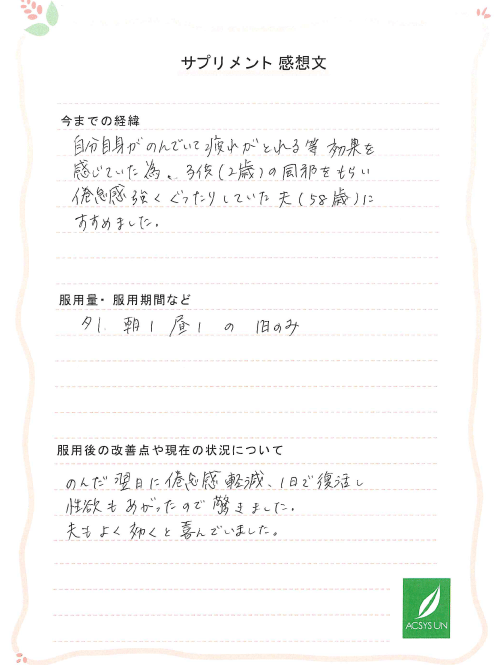 サプリメント 感想文
今までの経緯
自分自身がのんでいて疲れがとれる等 効果を
感じていた為、子供(2歳)の風邪をもらい
倦怠感強くぐったりしていた夫(58歳)に
すすめました。
服用量・服用期間など
夕1 朝1 昼1 の 1日のみ
服用後の改善点や現在の状況について
のんだ翌日に倦怠感軽減、1日で復活し
性欲もあがったので驚きました。
夫もよく効くと喜んでいました。
ACSYSUN